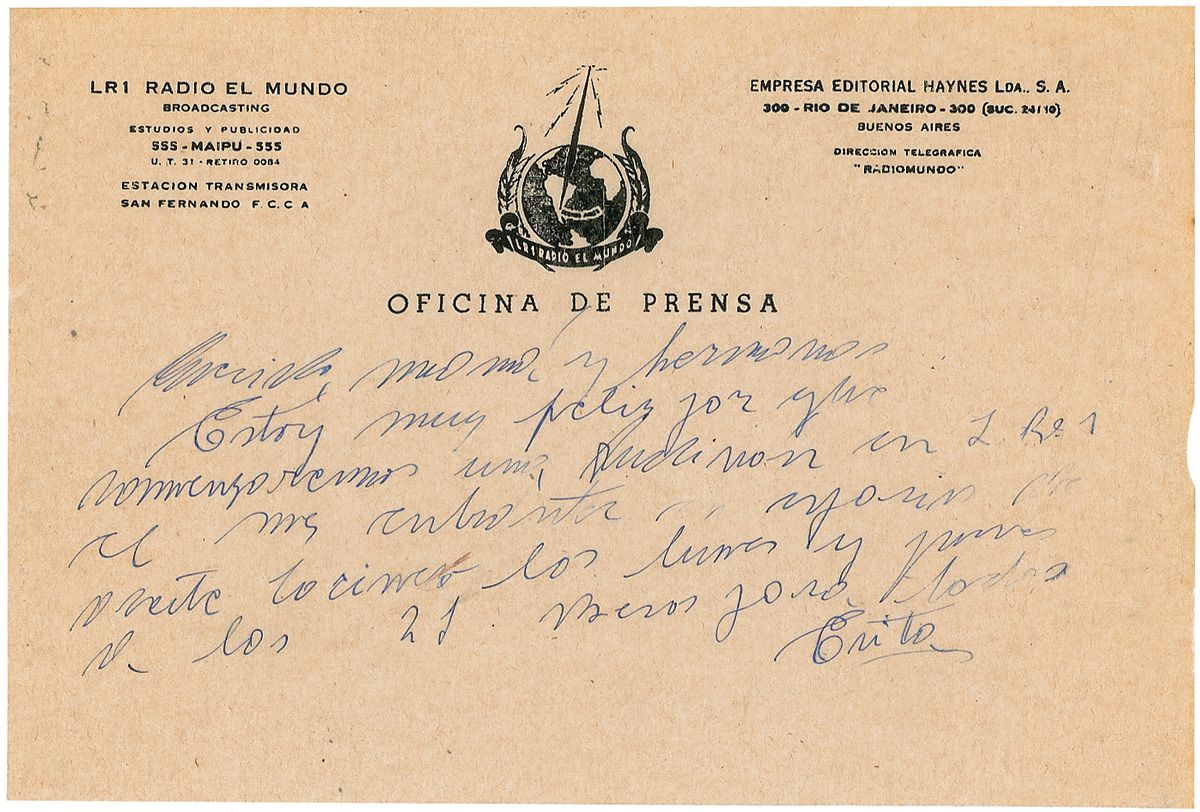 LR1 RADIO EL MUNDO
BROADCASTING
ESTUDIOS Y PUBLICIDAD
555 - MAIPU - 555
U. T. 31 - RETIRO 0084
ESTACION TRANSMISORA
SAN FERNANDO F. C. C A
EMPRESA EDITORIAL HAYNES LDA.. S. A.
300 - RIO DE JANEIRO - 300 (SUC. 24/10)
BUENOS AIRES
DIRECCION TELEGRAFICA
"RADIOMUNDO"
LR1 RADIO EL MUNDO
OFICINA DE PRENSA
Querida mamá y hermanos
Estoy muy feliz por que
comenzaremos una Audicion en L. R. 1
el mes entrante
aceite cocinero los lunes y jueves
a los 21. Besos para todos
Evita